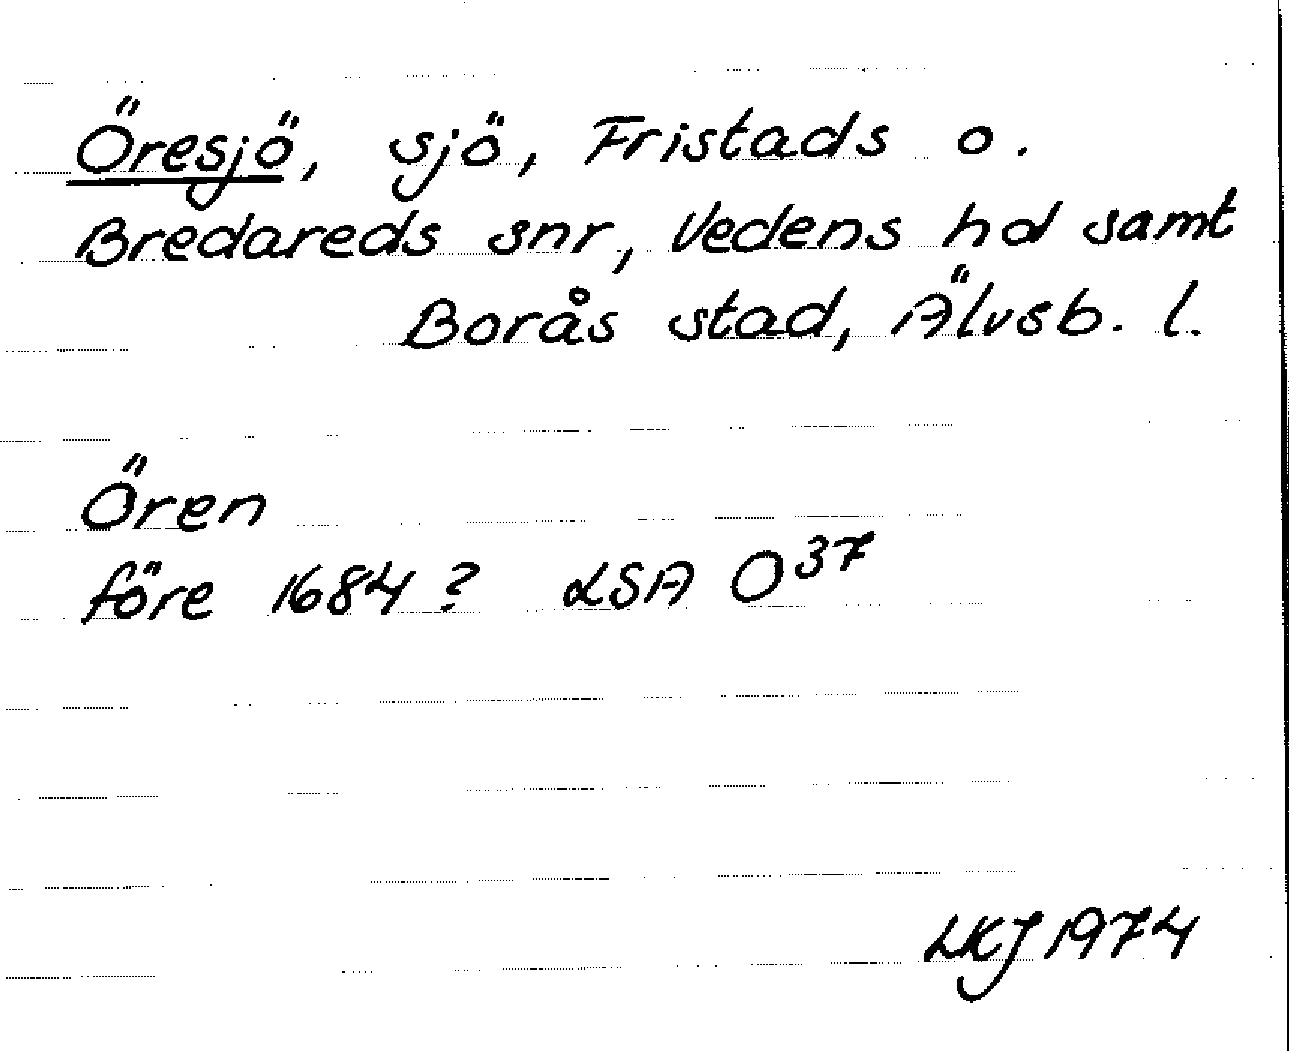 Öresjö, sjö, Fristads o.
Bredareds snr, Vedens hd samt
Borås stad, Älvsb. l.
Ören
före 1684? LSA O³⁷
LKJ 1974